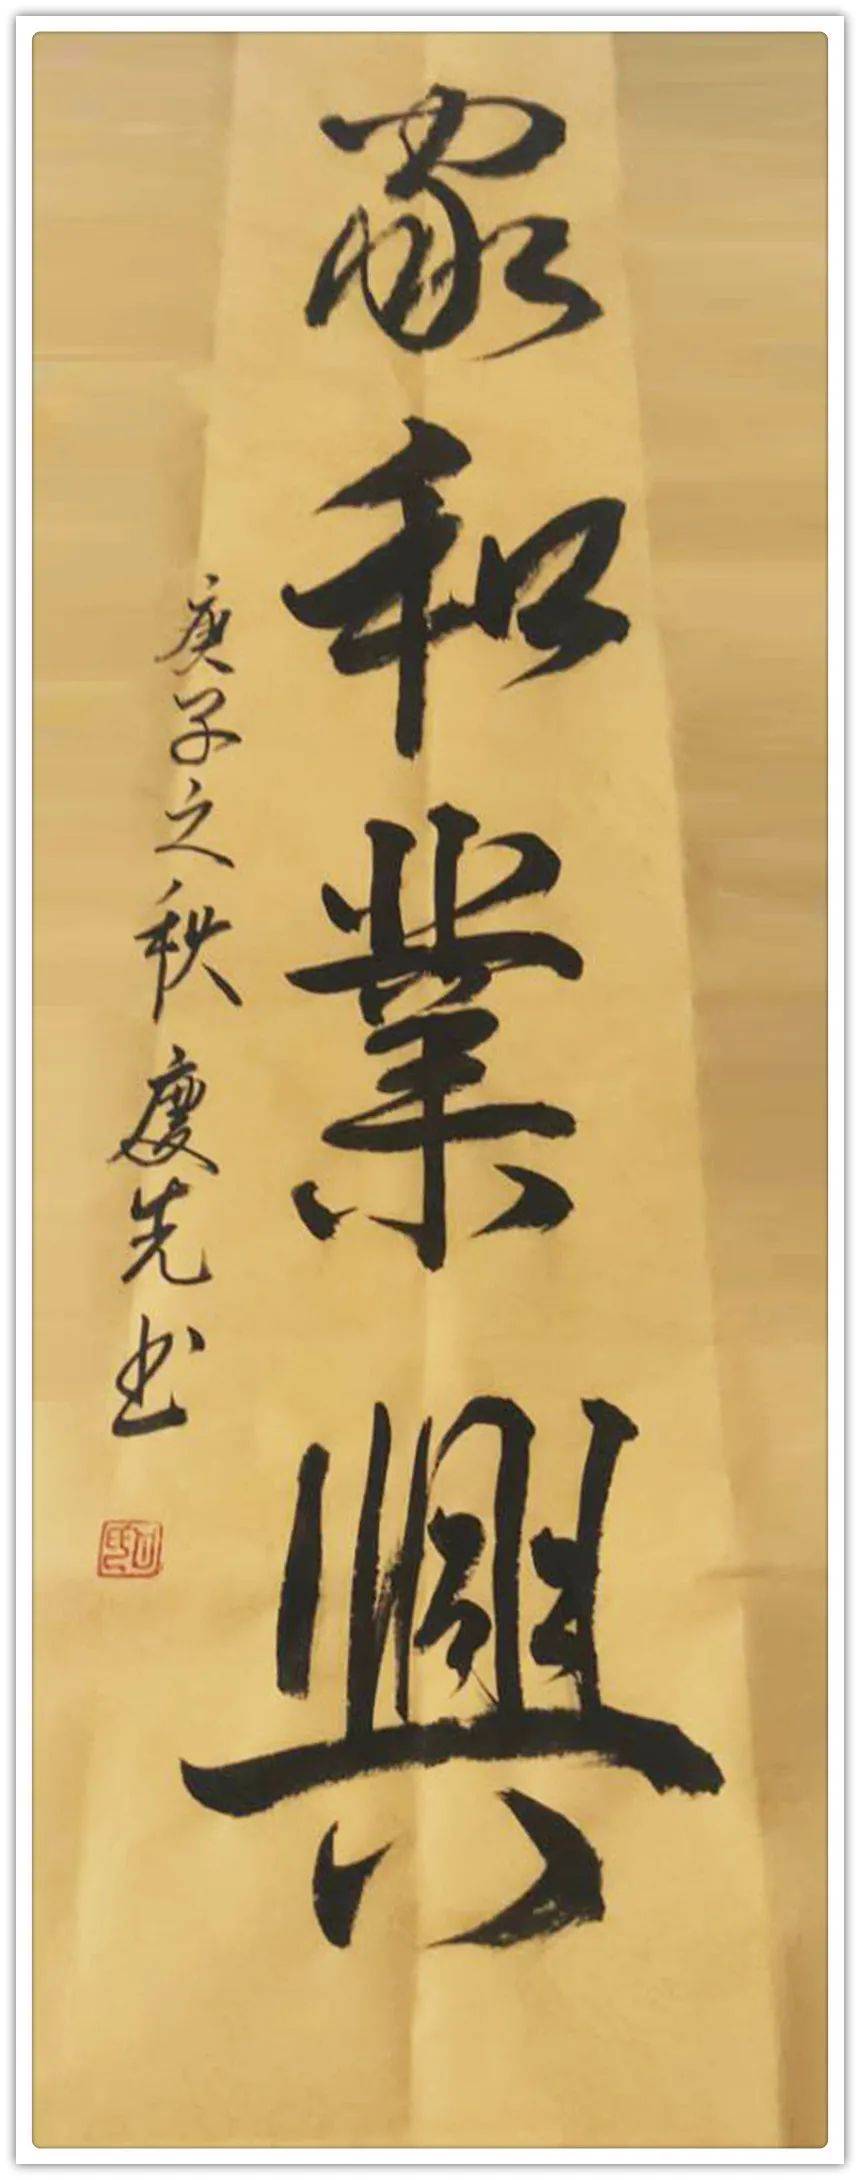 家和業興
庚子之秋慶先书